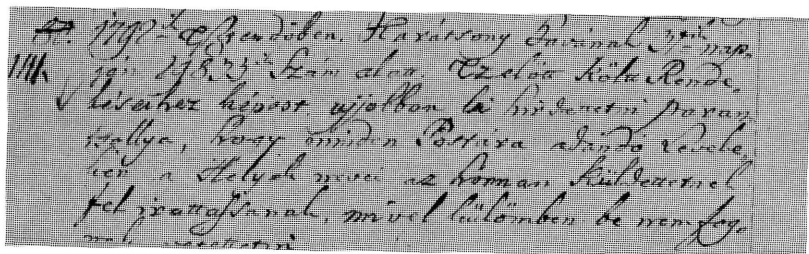 1792 Esztendőben. Karácsony Havának 27dik nap-
ján 29833 Szám alatt. Ez előtt költ Rende-
léseihez képest ujjobban ki hirdetetni paran
tsollya, hogy minden Postára adandó Levele-
ken a Helyek nevei az honnan küldettetnek
fel irattassanak, mivel külömben be nem fog-